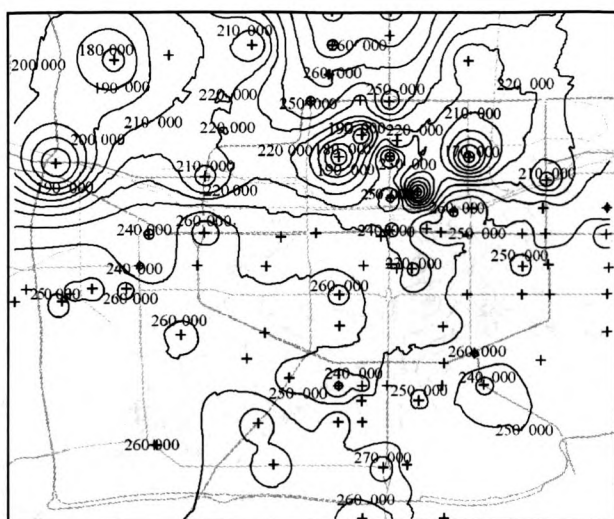 210 000
260 000
180 000
200 000
260 000
220 000
190 000
250 000
250 000
220 000
210 000
210 000
220 000
190 000
220 000
200 000
220 000
180 000
170 000
190 000
210 000
190 000
210 000
220 000
250 000
260 000
260 000
240 000
240 000
250 000
250 000
240 000
220 000
250 000
250 000
260 000
260 000
260 000
260 000
240 000
240 000
250 000
250 000
250 000
260 000
270 000
260 000